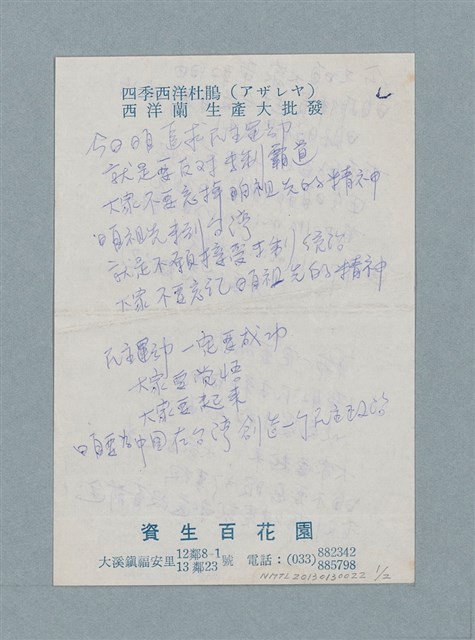 四季西洋杜鵑（アザレヤ）
西洋蘭 生產大批發
今日咱追求民主運動
就是要反对专制霸道
大家不要忘掉咱祖先的精神
咱祖先來到台湾
就是不願接受专制統治
大家不要忘記咱祖先的精神
民主運动一定要成功
大家要覚悟
大家要起来
咱要为中国在台湾創造一个民主政治
資生百花園
大溪鎮福安里12鄰8-1 13鄰23號 電話：(033)882342 885798
NMTL20130130022 1/2